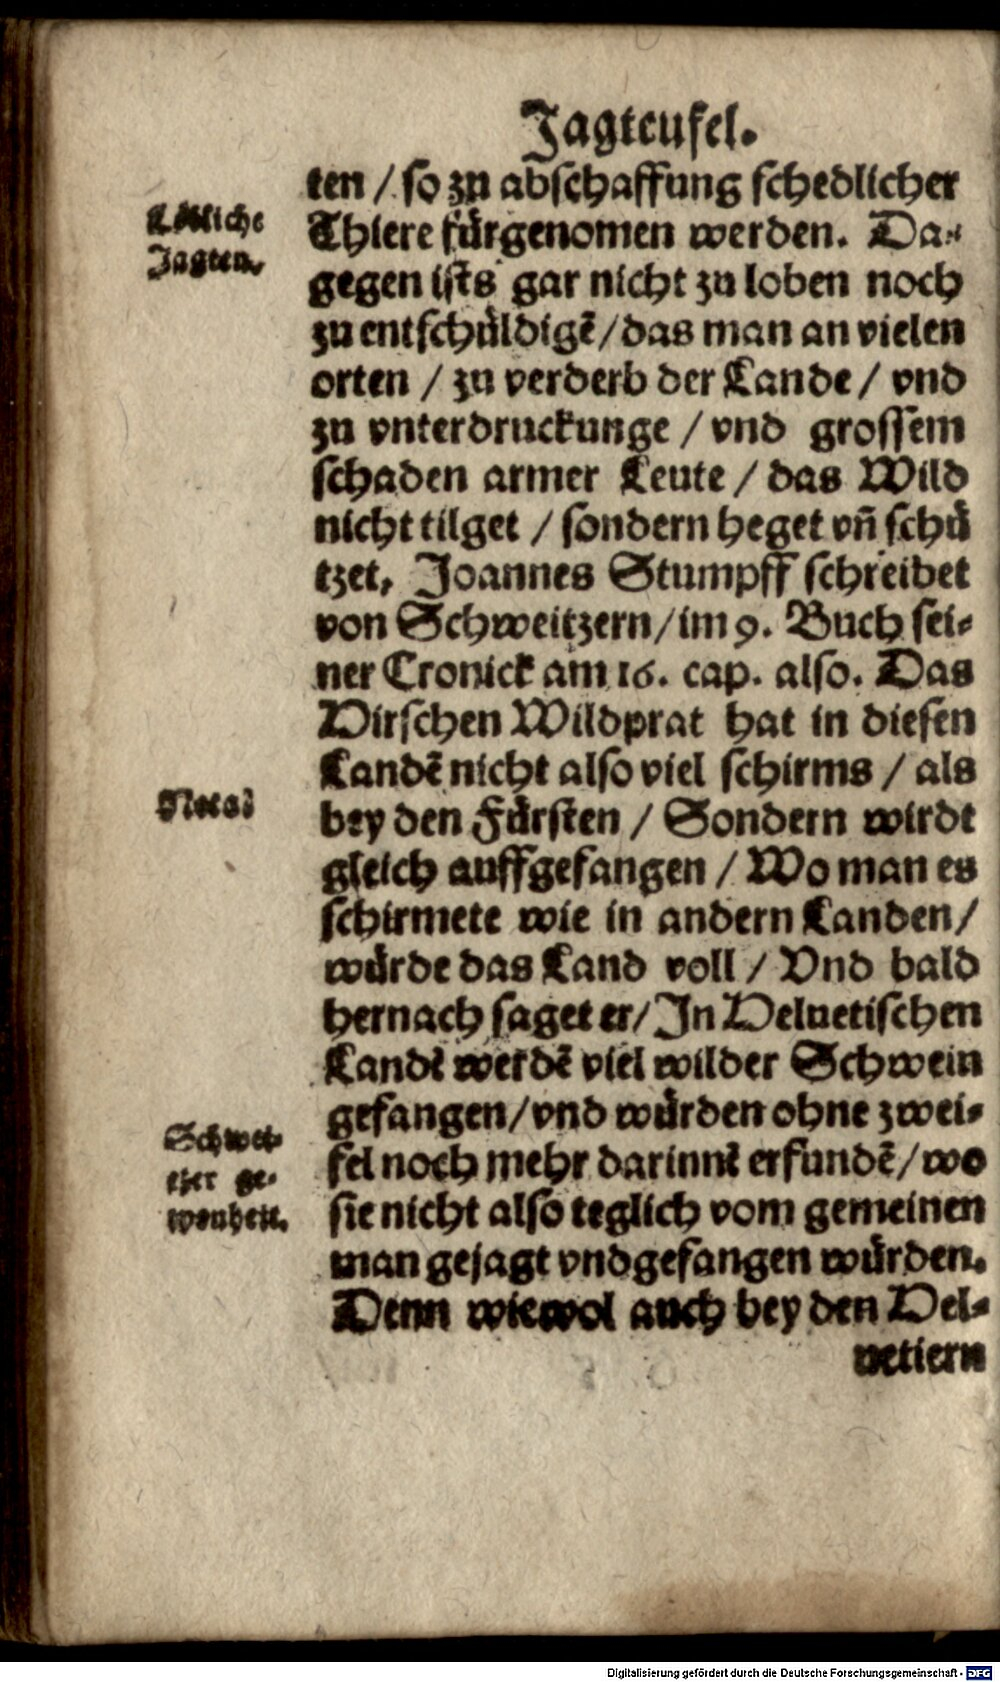 Jagteufel.
ten / so zu abschaffung schedlicher
Thiere fürgenomen werden. Da-
gegen ists gar nicht zu loben noch
zu entschüldigẽ / das man an vielen
orten / zu verderb der Lande / vnd
zu vnterdruckunge / vnd grossem
schaden armer Leute / das Wild
nicht tilget / sondern heget vñ schü
tzet, Joannes Stumpff schreibet
von Schweitzern / im 9. Buch sei-
ner Cronick am 16. cap. also. Das
Hirschen Wildprat hat in diesen
Landẽ nicht also viel schirms / als
bey den Fürsten / Sondern wirdt
gleich auffgefangen / Wo man es
schirmete wie in andern Landen /
würde das Land voll / Vnd bald
hernach saget er / In Heluetischen
Landẽ werdẽ viel wilder Schwein
gefangen / vnd würden ohne zwei-
fel noch mehr darinnẽ erfundẽ / wo
sie nicht also teglich vom gemeinen
man gejagt vnd gefangen würden.
Denn wiewol auch bey den Hel-
uetiern
Löbliche
Jagten.
Nota:
Schwei-
tzer ge-
wonheit.
Digitalisierung gefördert durch die Deutsche Forschungsgemeinschaft - DFG